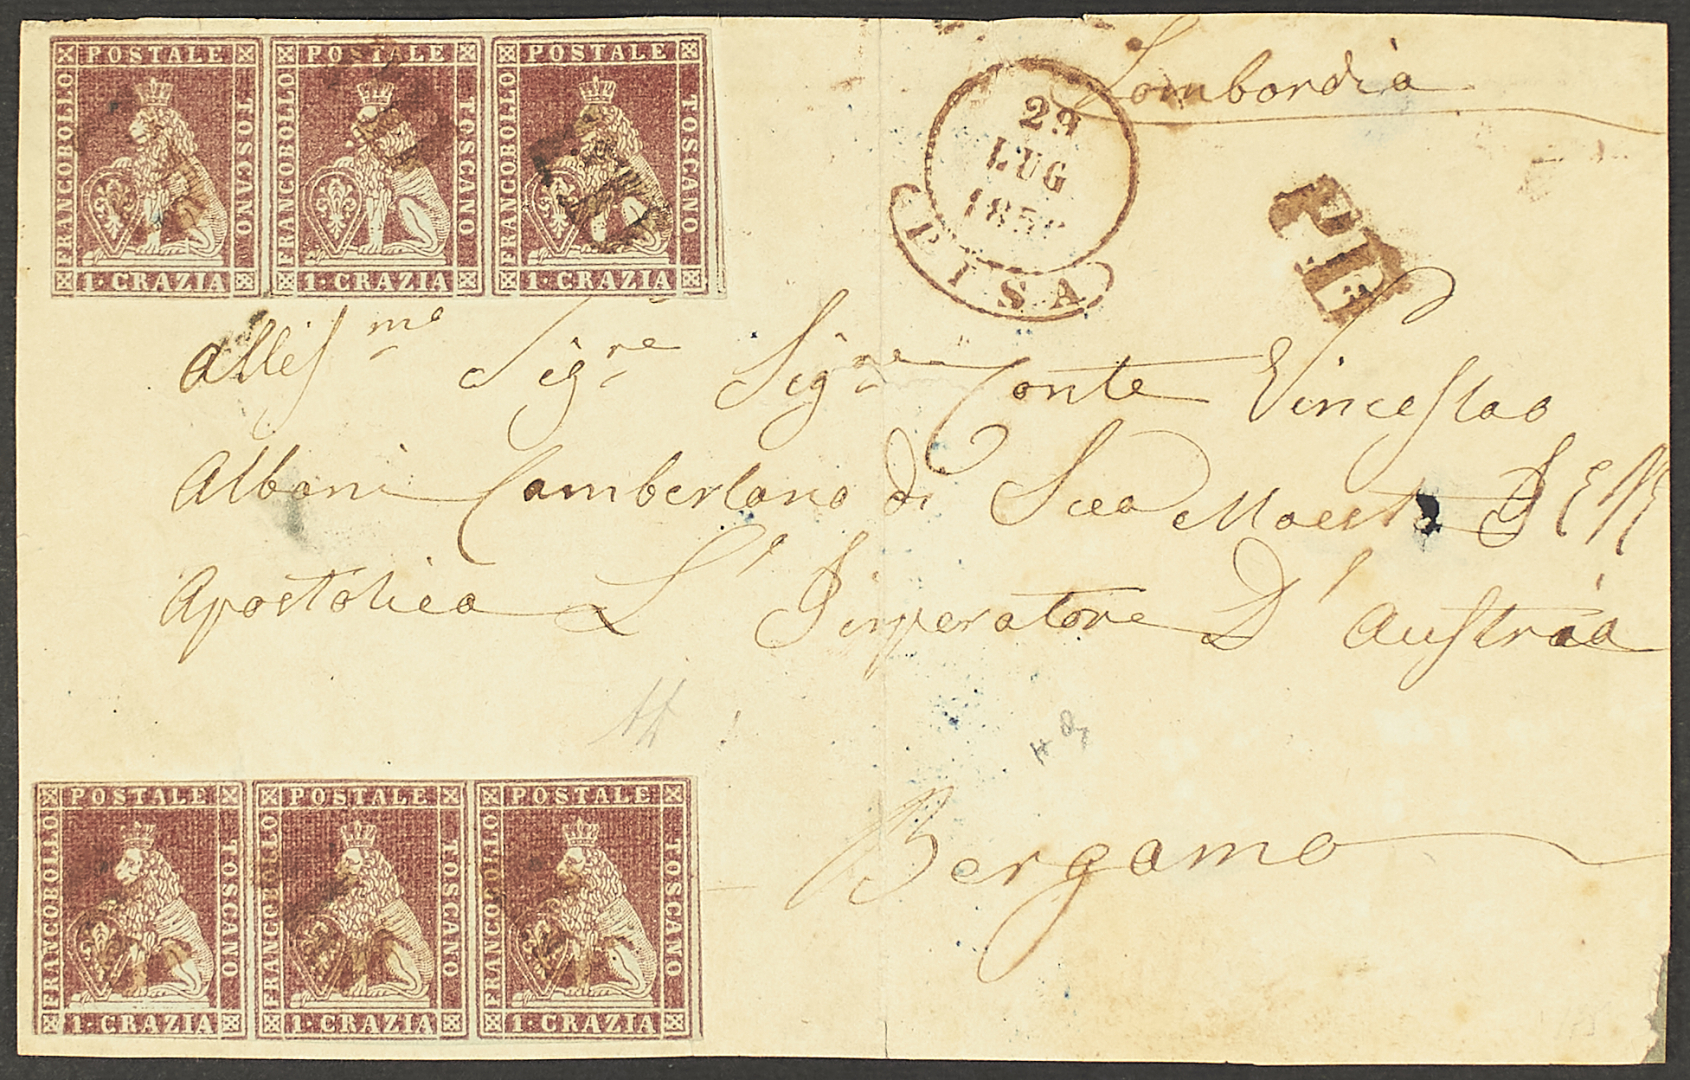 POSTALE POSTALE POSTALE
FRANCOBOLLO TOSCANO FRANCOBOLLO TOSCANO FRANCOBOLLO TOSCANO
1·CRAZIA 1·CRAZIA 1·CRAZIA
Lombardia
29
LUG
185
PISA
PD
Sigre Sigre Conte Vinceslao
Albani Camberlano di Sua
Apostolica L' Imperatore D' Austria
Bergamo
POSTALE POSTALE POSTALE
FRANCOBOLLO TOSCANO FRANCOBOLLO TOSCANO FRANCOBOLLO TOSCANO
1·CRAZIA 1·CRAZIA 1·CRAZIA